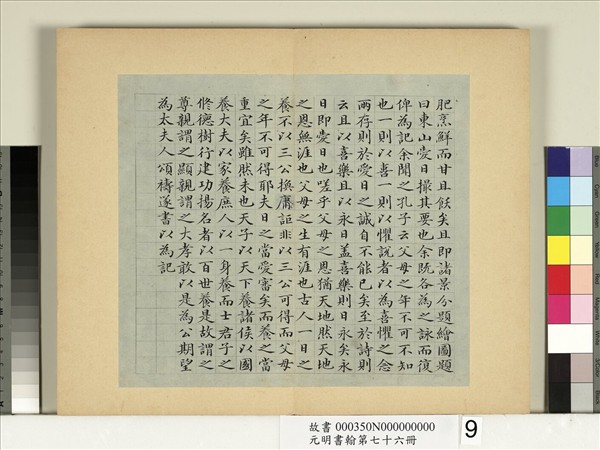 肥烹鮮而甘且飫矣且即諸景分題繪圖題
曰東山愛日撮其要也余旣各為之詠而復
俾為記余聞之孔子云父母之年不可不知
也一則以喜一則以懼說者以為喜懼之念
兩存則於愛日之誠自不能已矣至於詩則
云且以喜樂且以永日蓋喜樂則日永矣永
日即愛日也嗟乎父母之恩猶天地然天地
之恩無涯也父母之生有涯也古人一日之
養不以三公換膺詎非以三公可得而父母
之年不可得耶夫日之當愛審矣而養之當
重宜矣雖然未也天子以天下養諸侯以國
養大夫以家養庶人以一身養而士君子之
脩德樹行建功揚名者以百世養是故謂之
尊親謂之顯親謂之大孝敢以是為公期望
為太夫人頌禱遂書以為記
故書 000350N000000000
元明書翰第七十六冊
9